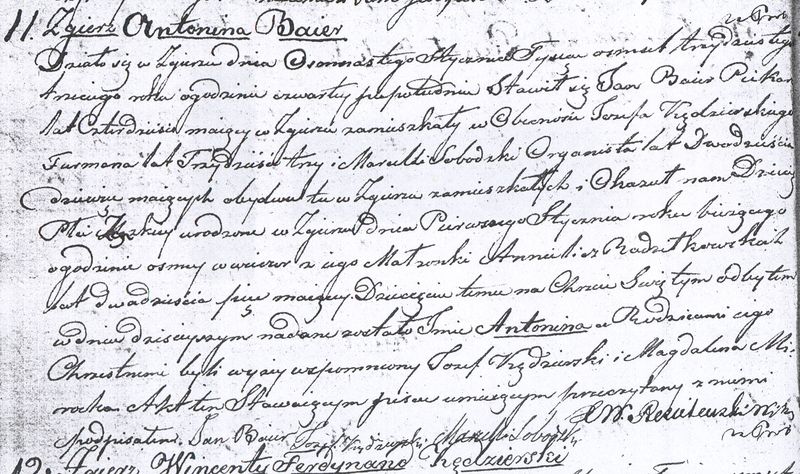 w Prob
11. Zgierz Antonina Baier
Działo się w Zgierzu dnia Osomnastego Stycznia Tysiąc osmset trzydziestego
trzeciego roku o godzinie czwartey popołudniu Stawił się Jan Baier Piekarz
lat Czterdzieści maiący w Zgierzu zamieszkały w Obecności Jozefa Kędzierskiego
Furmana lat Trzydzieści trzy i Sobodzki Organista lat Dwadzieścia
dziewięć maiących obydwu tu w Zgierzu zamieszkałych i Okazał nam Dziecię
Płci urodzone w Zgierzu dnia Pierwszego Stycznia roku bieżącego
o godzinie osmey wwieczor z iego Małżonki Anneli z Radzitkowskich
lat dwadzieścia pięć maiącey. Dziecięciu temu na Chrzcie Swiętym odbytym
w dniu dzisieyszym nadane zostało Imie Antonina a Rodzicami iego
Chrzestnemi byli wyżey wspomniony Jozef Kędzierski i Magdalina Mi-
rocka. Akt ten Stawaiącym pisać umieiącym przeczytany z niemi
podpisałem. Jan Baier Jozef Kędzierski Sobodzki
w Prob
12. Zgierz Wincenty Ferdynand Kędzierski